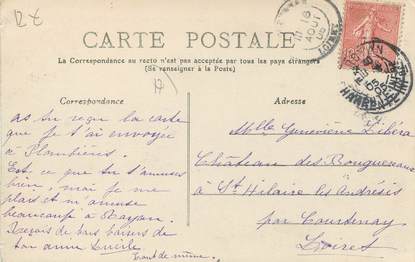 12 €
CARTE POSTALE
La Correspondance au recto n'est pas acceptée par tous les pays étrangers
(Se renseigner à la Poste)
Correspondance
Adresse
as tu reçu la carte
que je t'ai envoyée
à Plombières.
Est ce que tu t'amuses
bien, moi je me
plais et m'amuse
beaucoup à Royan.
Reçois de bons baisers de
ton amie Lucile
tout de même.
Mlle Geneviève
Château des
à St Hilaire les Andrésis
par Courtenay
Loiret
16
AOUT
LOIRET